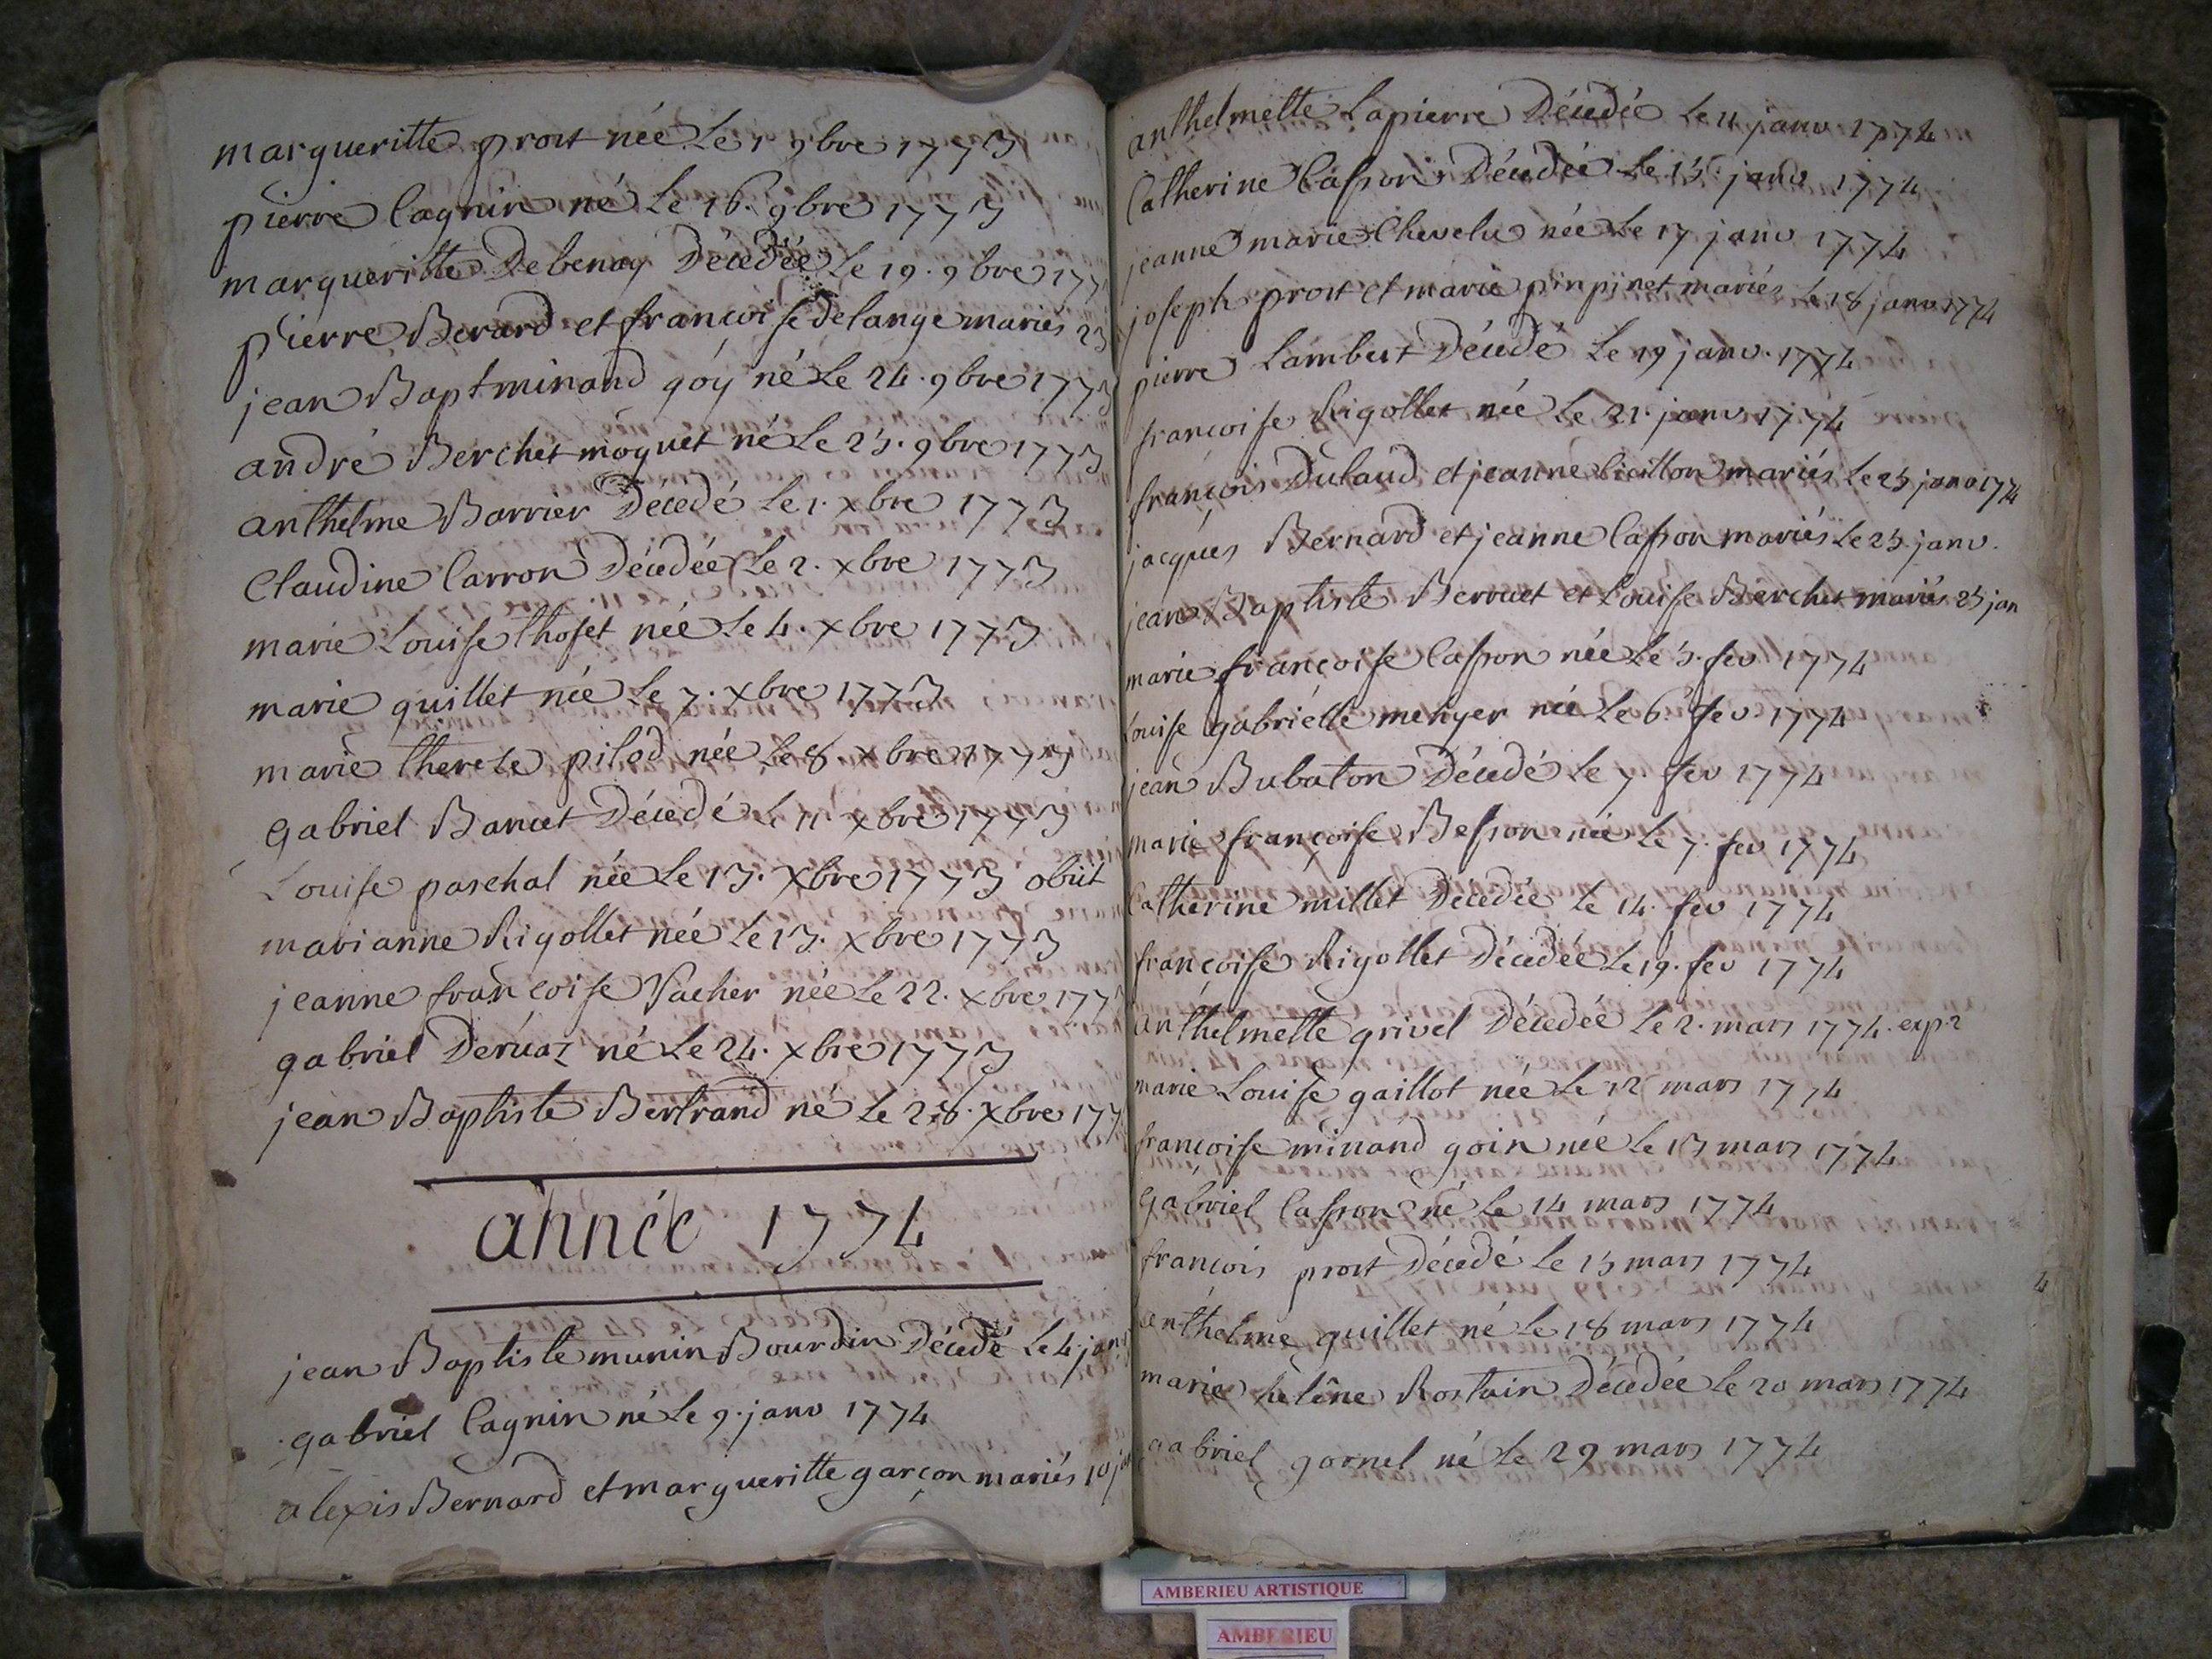 margueritte prost née Le 7 9bre 1773
pierre Cagnin né Le 16. 9bre 1773
margueritte Debenay Décédée Le 19. 9bre 177
pierre Berard et françoise delange mariés 23
jean Bapt minand goÿ né Le 24. 9bre 1773
andré Berchet moguet né Le 25. 9bre 1773
anthelme Barrier Décédé Le 1. xbre 1773
Claudine Carron Décédée Le 2. xbre 1773
marie Louise thoset née Le 4. xbre 1773
marie guillet née Le 7. xbre 1773
marie therese pilod née Le 8. xbre 1773
gabriel Bancet Décédé Le 11 xbre 1773
Louise paschal née Le 13. Xbre 1773 obiit
marianne Rigollet née Le 13. xbre 1773
jeanne françoise Vacher née Le 22. xbre 177
gabriel Deruaz né Le 24. xbre 1773
jean Baptiste Bertrand né Le 28. xbre 177
année 1774
jean Baptiste munin Bourdin Décédé Le 4 janv
gabriel Cagnin né Le 9. janv 1774
alexis Bernard et margueritte garçon mariés 10 j
anthelmette Lapierre Décédée Le 11 janv 1774
Catherine Casson Décédée Le 15. janv 1774
jeanne marie Chevelu née Le 17 janv 1774
joseph prost et marie pinpinet mariés Le 18 janv 1774
pierre Lambert Décédé Le 19 janv. 1774
françoise Rigollet née Le 21. janv 1774
françois Dulaud et jeanne mariés Le 25 janv 1774
jacques Bernard et jeanne Casson mariés Le 25 janv.
jean Baptiste Berruet et Louise Berchet mariés 25 jan
marie françoise Casson née Le 5. fev 1774
Louise gabrielle menyer née Le 6 fev 1774
jean Bubaton Décédé Le 7 fev 1774
marie françoise Besson née Le 7. fev 1774
Catherine millet Décédée Le 14. fev 1774
françoise Rigollet Décédée Le 19. fev 1774
anthelmette grivel Décédée Le 2. mars 1774. exp.2
marie Louise gaillot née Le 12 mars 1774
françoise minand goin née Le 13 mars 1774
gabriel Casson né Le 14 mars 1774
françois prost Décédé Le 15 mars 1774
anthelme guillet né Le 18 mars 1774
marie hélène Rostain Décédée Le 20 mars 1774
gabriel gornel né Le 29 mars 1774
AMBERIEU ARTISTIQUE
AMBERIEU